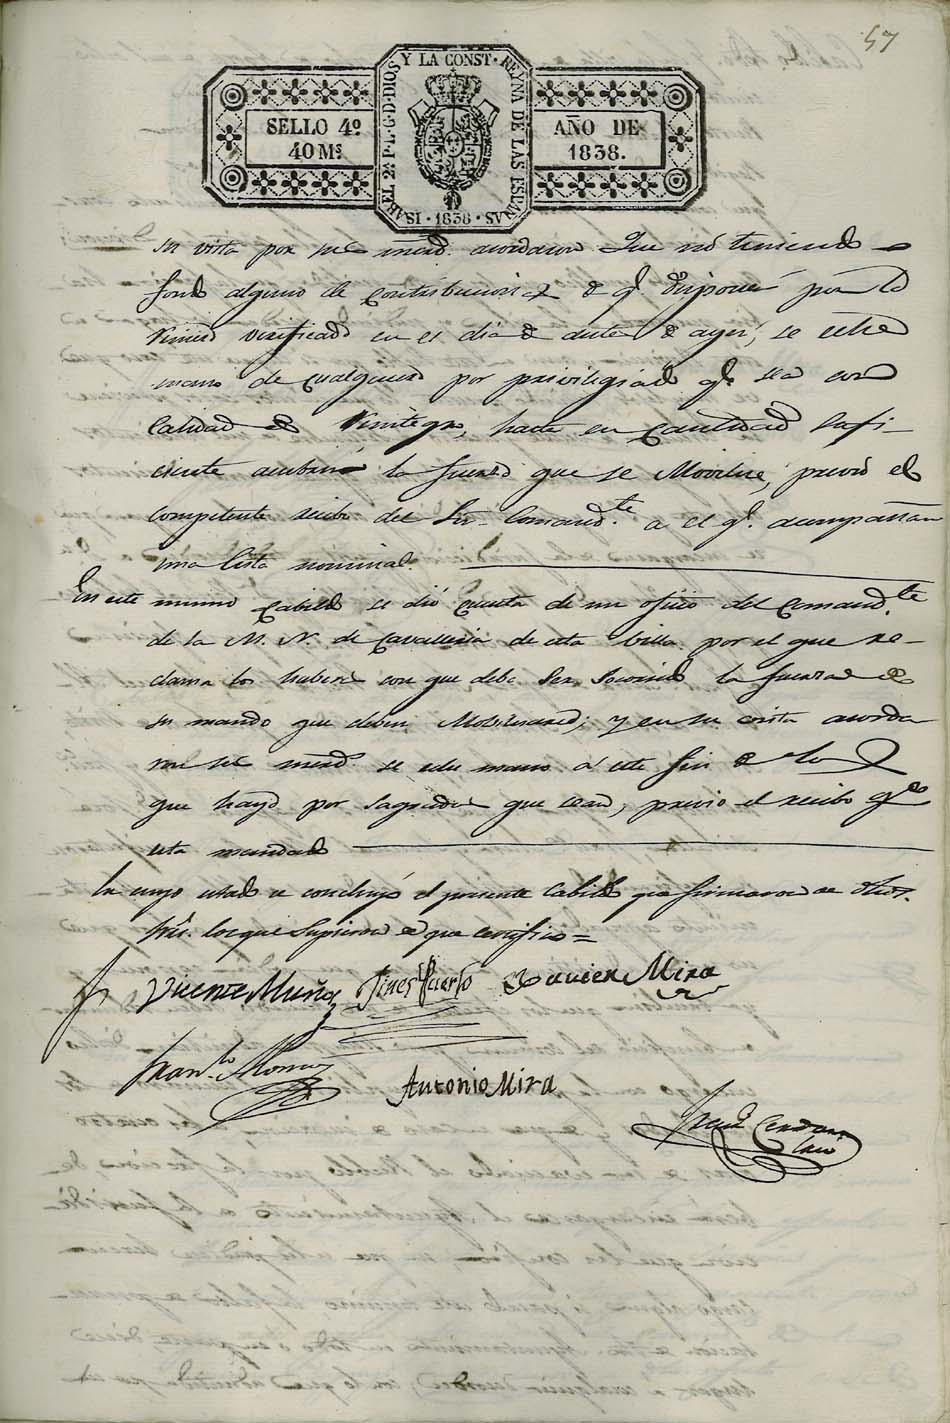 57
ISABEL 2ª P. L. G. D. DIOS Y LA CONST. REYNA DE LAS ESPAÑAS · 1838 ·
SELLO 4º
40 Ms
AÑO DE
1838.
su vista por sus mrds. acordaron Que no teniendo
fondo alguno de contribucion de q.
verificado en el dia de antes de ayer, se eche
mano de cualquiera por privilegiado q. sea con
Calidad de Reintegro, hasta en cantidad Sufi-
ciente la fuerza que se Movilise, previo el
Competente recibo del Sr. Comand.te a el q. acompañará
una lista nominal.
En este mismo Cabildo se dió cuenta de un oficio del Comand.te
de la M. N. de Cavalleria de esta Villa por el que re-
clama los haberes con que debe Ser Socorrida la fuerza de
su mando que deben Movilisarse; y en su vista acorda
ron sus mrds. se eche mano á este fin de los
que haya por Sagrados que sean, previo el recibo q.e
esta mandado
En cuyo estado se concluyó el presente Cabildo que firmaron de dhos.
Sres. los que Supieron de que certifico =
Vicente Muñoz Gines Puerto Xavier Mira
Fran.co
Antonio Mira